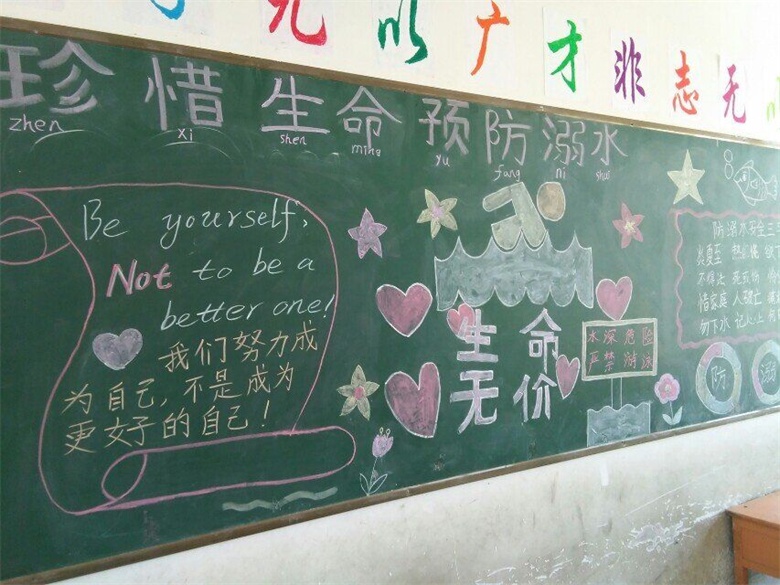 无以广才 非志无
珍惜生命 预防溺水
zhen xi shen ming yu fang ni shui
Be yourself,
Not to be a
better one!
我们努力成
为自己,不是成为
更好的自己!
生命
无价
水深危险
严禁游泳
防溺水安全三
炎夏至 热难耐
不得法
惜家庭
勿下水 记心上
防 溺